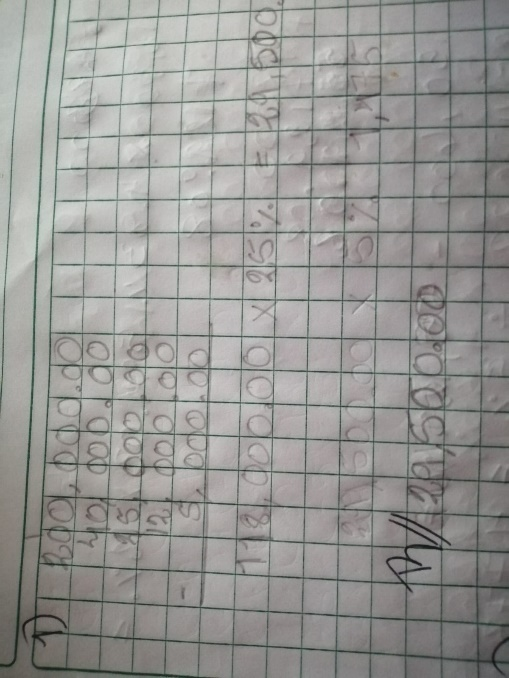 1)
200,000.00
40,000.00
25,000.00
12,000.00
- 5,000.00
118,000.00 x 25% = 29,500.
29,500.00 x 5% 1,475
R// 29,500.00